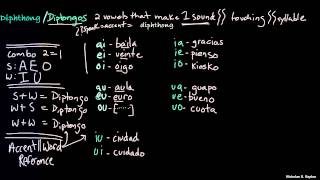 Diphthong / Diptongos 2 vowels that make 1 sound touching syllable
accent = diphthong
combo 2=1
S: A E O
W: I U
S + W = Diptongo
W + S = Diptongo
W + W = Diptongo
Accent Word
Reference
ai - baila
ei - veinte
oi - oigo
au - aula
eu - euro
ou - [....]
iu - ciudad
ui - cuidado
ia - gracias
ie - pienso
io - kiosko
ua - guapo
ue - bueno
uo - cuota